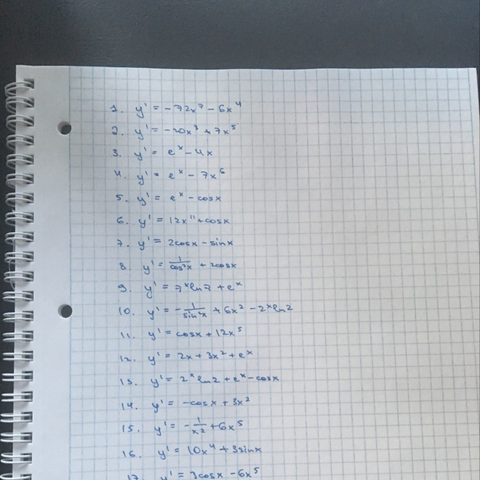 1. y' = -72x⁷ - 6x⁴
2. y' = -20x³ + 7x⁵
3. y' = eˣ - 4x
4. y' = eˣ - 7x⁶
5. y' = eˣ - cosx
6. y' = 12x¹¹ + cosx
7. y' = 2cosx - sinx
8. y' = 1/cos²x + 2cosx
9. y' = 7ˣln7 + eˣ
10. y' = -1/sin²x + 6x² - 2ˣln2
11. y' = cosx + 12x⁵
12. y' = 2x + 3x² + eˣ
13. y' = 2ˣln2 + eˣ - cosx
14. y' = -cosx + 3x²
15. y' = -1/x² + 6x⁵
16. y' = 10x⁴ + 3sinx
17. y' = 3cosx - 6x⁵